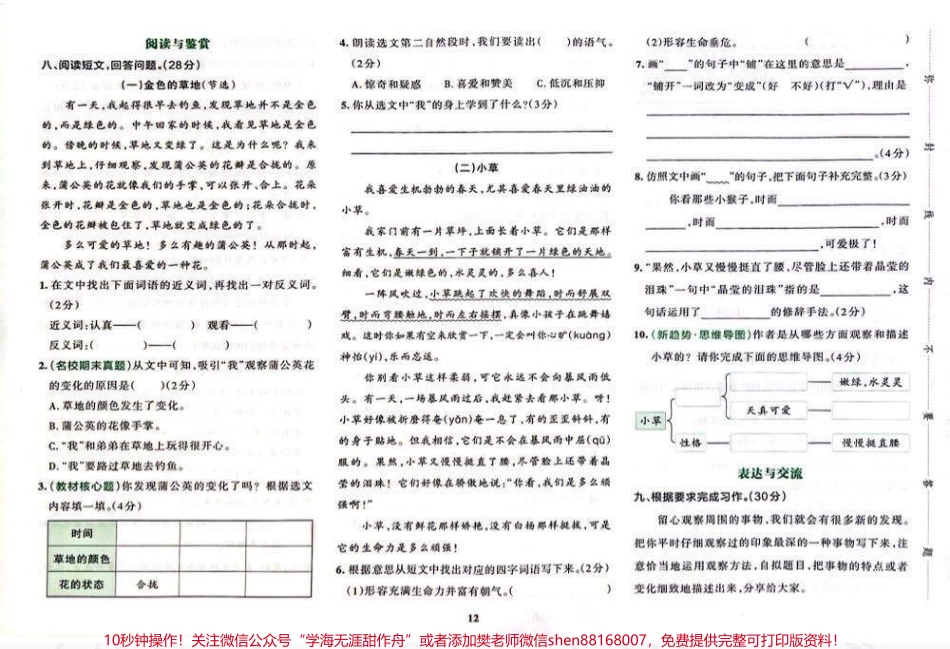 阅读与鉴赏
八、阅读短文,回答问题。(28分)
(一)金色的草地(节选)
有一天,我起得很早去钓鱼,发现草地并不是金色
的,而是绿色的。中午回家的时候,我看见草地是金色
的。傍晚的时候,草地又变绿了。这是为什么呢?我来
到草地上,仔细观察,发现蒲公英的花瓣是合拢的。原
来,蒲公英的花就像我们的手掌,可以张开、合上。花朵
张开时,花瓣是金色的,草地也是金色的;花朵合拢时,
金色的花瓣被包住了,草地就变成绿色的了。
多么可爱的草地!多么有趣的蒲公英!从那时起,
蒲公英成了我们最喜爱的一种花。
1.在文中找出下面词语的近义词,再找出一对反义词。
(2分)
近义词:认真——( ) 观看——( )
反义词:( )——( )
2.(名校期末真题)从文中可知,吸引“我”观察蒲公英花
的变化的原因是( )(2分)
A.草地的颜色发生了变化。
B.蒲公英的花像手掌。
C.“我”和弟弟在草地上玩得很开心。
D.“我”要路过草地去钓鱼。
3.(教材核心题)你发现蒲公英的变化了吗?根据选文
内容填一填。(4分)
时间
草地的颜色
花的状态 合拢
4.朗读选文第二自然段时,我们要读出( )的语气。
(2分)
A.惊奇和疑惑 B.喜爱和赞美 C.低沉和压抑
5.你从选文中“我”的身上学到了什么?(3分)
(二)小草
我喜爱生机勃勃的春天,尤其喜爱春天里绿油油的
小草。
我家门前有一片草坪,上面长着小草。它们是那样
富有生机,春天一到,一下子就铺开了一片绿色的天地。
细看,它们是嫩绿色的,水灵灵的,多么喜人!
一阵风吹过,小草跳起了欢快的舞蹈,时而舒展双
臂,时而弯腰触地,时而左右摇摆,真像小孩子在跳舞嬉
戏。这时你如果有空来欣赏一下,一定会叫你心旷(kuàng)
神怡(yí),乐而忘返。
你别看小草这样柔弱,可它永远不会向暴风雨低
头。有一天,一场暴风雨过后,我赶紧去看那小草。呀!
小草好像被折磨得奄(yǎn)奄一息了,有的歪歪斜斜,有
的身子贴地。但我相信,它们是不会在暴风雨中屈(qū)
服的。果然,小草又慢慢挺直了腰,尽管脸上还带着晶
莹的泪珠!它们好像在骄傲地说:“你看,我们是多么顽
强啊!”
小草,没有鲜花那样娇艳,没有白杨那样挺拔,可是
它的生命力是多么顽强!
6.根据意思从短文中找出对应的四字词语写下来。(2分)
(1)形容充满生命力并富有朝气。( )
(2)形容生命垂危。 ( )
7.画“____”的句子中“铺”在这里的意思是________,
“铺开”一词改为“变成”(好 不好)(打“√”),理由是
。(4分)
8.仿照文中画“﹏﹏”的句子,把下面句子补充完整。(3分)
你看那些小猴子,时而
,时而 ,时而
,可爱极了!
9.“果然,小草又慢慢挺直了腰,尽管脸上还带着晶莹的
泪珠”一句中“晶莹的泪珠”指的是________,这
句话运用了________的修辞手法。(2分)
10.(新趋势·思维导图)作者是从哪些方面观察和描述
小草的?请你完成下面的思维导图。(4分)
嫩绿,水灵灵
小草 天真可爱
性格 慢慢挺直腰
表达与交流
九、根据要求完成习作。(30分)
留心观察周围的事物,我们就会有很多新的发现。
把你平时仔细观察过的印象最深的一种事物写下来,注
意恰当地运用观察方法,自拟题目,把事物的特点或者
变化细致地描述出来,分享给大家。
密
封
线
内
不
要
答
题
12
10秒钟操作!关注微信公众号“学海无涯甜作舟”或者添加樊老师微信shen88168007,免费提供完整可打印版资料!